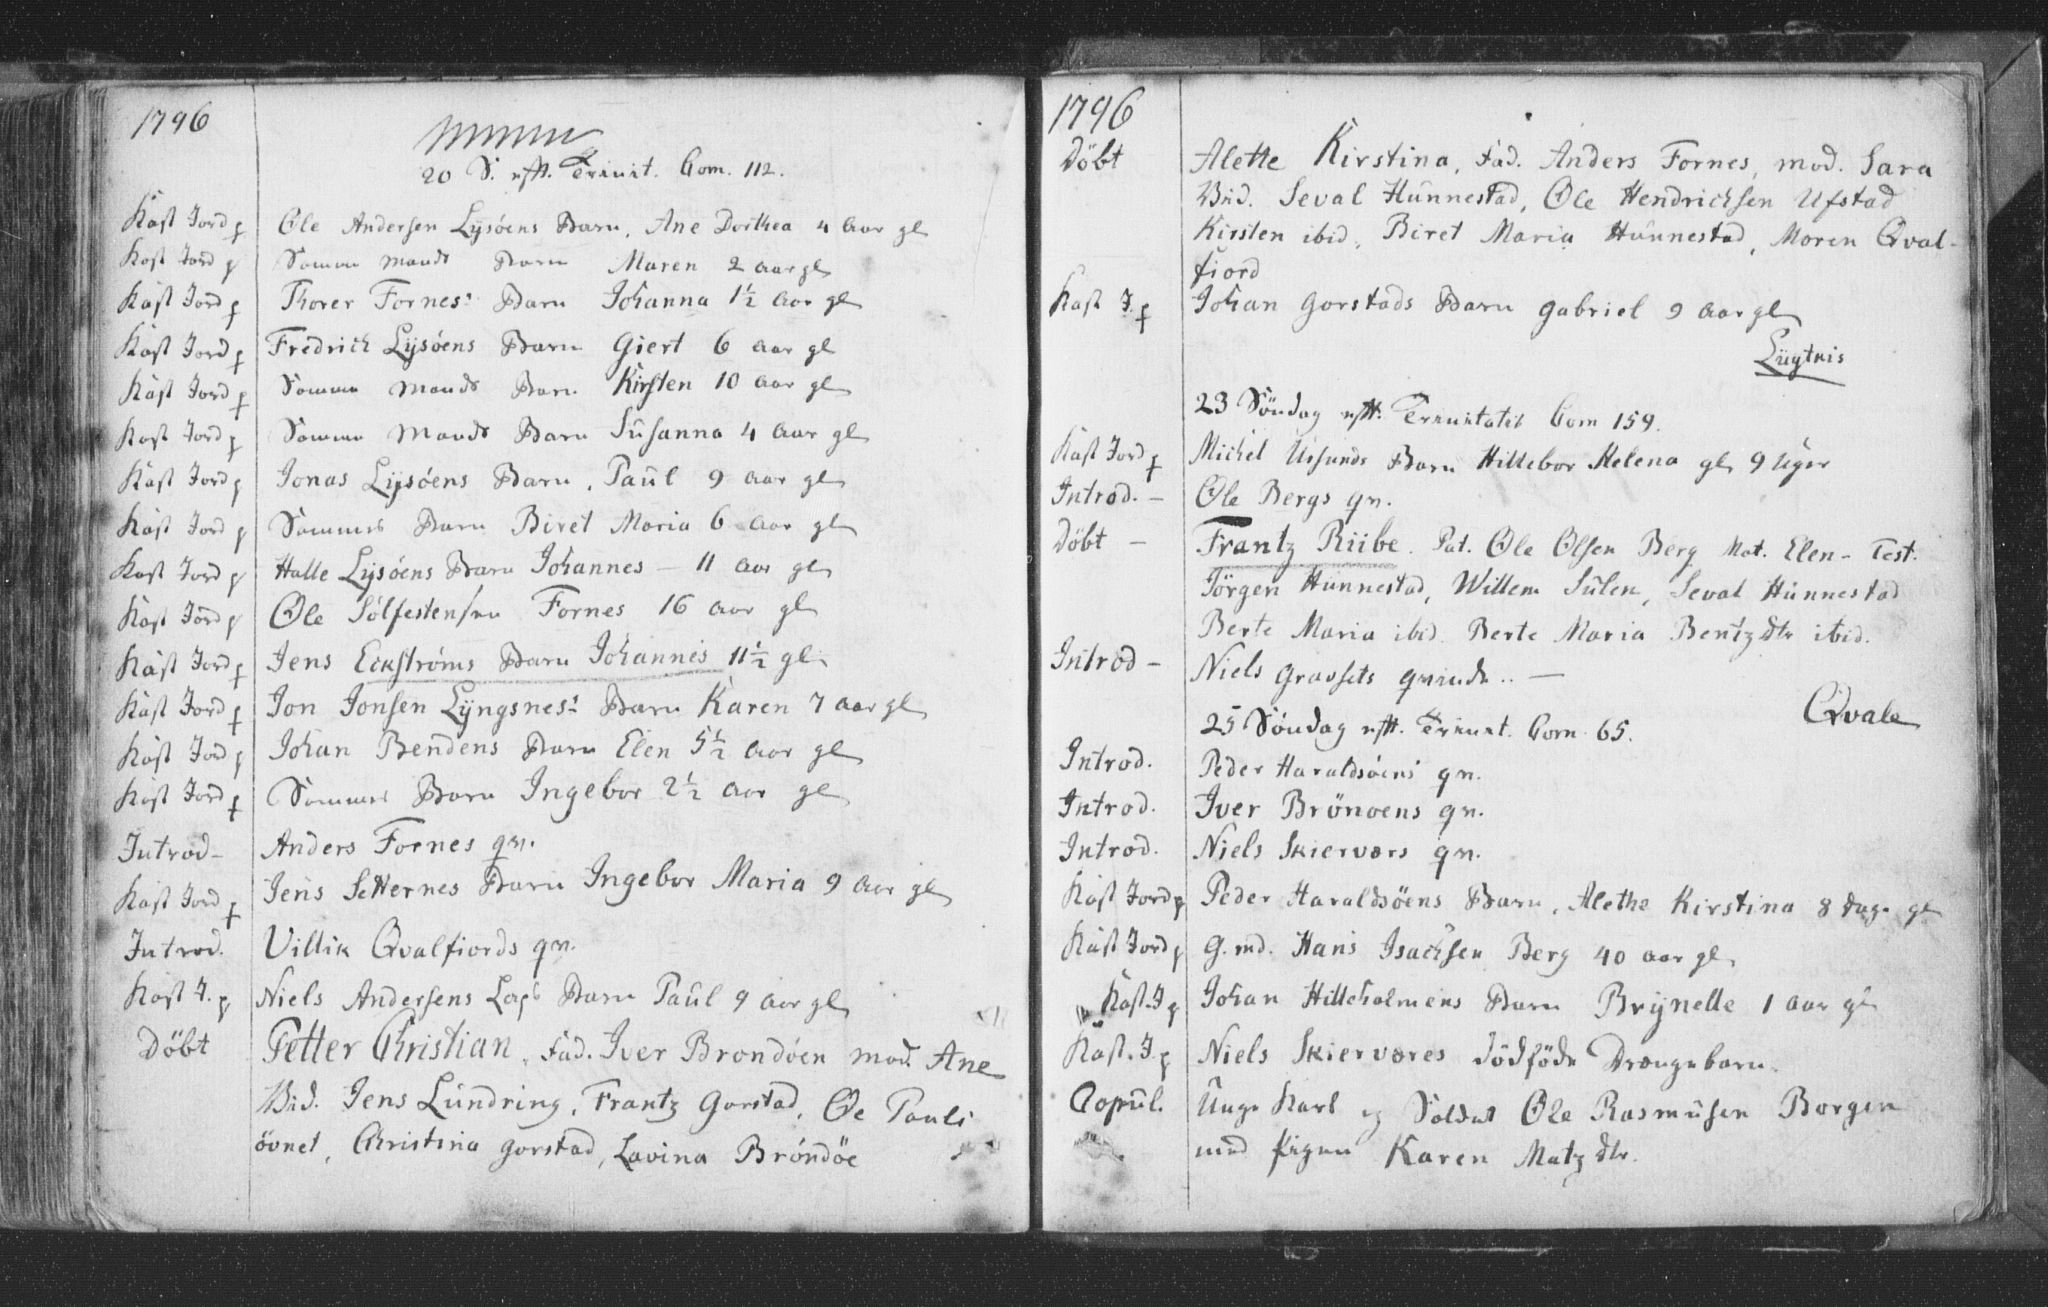 1796
20 S. eft. Trinit. Com. 112.
Kast Jord p Ole Andersen Lysöens Barn, Ane Dorthea 4 Aar gl
Kast Jord p Samme Mands Barn Maren 2 aar gl
Kast Jord p Thorer Fornes: Barn Johanna 1½ Aar gl
Kast Jord p Fredrich Lysöens Barn Giert 6 Aar gl
Kast Jord p Samme Mands Barn Kirsten 10 Aar gl
Kast Jord p Samme Mands Barn Susanna 4 Aar gl
Kast Jord p Jonas Lysöens Barn, Paul 9 Aar gl
Kast Jord p Sammes Barn Biret Maria 6 Aar gl
Kast Jord p Halle Lysöens Barn Johannes – 11 Aar gl
Kast Jord p Ole Sölfestensen Fornes 16 Aar gl
Kast Jord p Jens Eckströms Barn Johannes 11½ gl
Kast Jord p Jon Jonsen Lyngsnes: Barn Karen 7 aar gl
Kast Jord p Johan Bendens Barn Elen 5½ Aar gl
Kast Jord p Sammes Barn Ingebor 2½ Aar gl
Introd – Anders Fornes qn.
Kast Jord p Jens Setternes Barn Ingebor Maria 9 Aar gl
Introd. Villik Qvalfiords qn.
Kast J. p Niels Andersens Barn Paul 9 Aar gl
Döbt Fetter Christian, Fad. Iver Brondöen mod. Ane
Vid. Jens Lundring, Frantz Gorstad, Ole Pauls
övnet, Christina Gorstad, Lavina Bröndöe
1796
Döbt Alette Kirstina, Fad. Anders Fornes, mod. Sara
Vid. Seval Hunnestad, Ole Hendrichsen Ufstad
Kirsten ibid, Biret Maria Hunnestad, Maren Qval-
fiord
Kast J. p Johan Gorstads Barn Gabriel 9 Aar gl
23 Söndag eft. Trinitatis Com 159.
Kast Jord p Michel Barn Hillebor Helena gl 9 Uger
Introd. – Ole Bergs qn.
Döbt – Frantz Riibe. Pat. Ole Olsen Berg Mat. Elen – Test.
Jörgen Hunnestad, Willem Sulen, Seval Hunnestad
Berte Maria ibid. Berte Maria Bentz dtr ibid.
Introd – Niels Gravsets qvinde .. –
Qvale
25 Söndag eft. Trinit. Com. 65.
Introd. Peder Haraldsöens qn.
Introd. Iver Brönoens qn.
Introd. Niels Skiervars qn.
Kast Jord p Peder Haraldsöens Barn, Alethe Kirstina 8 dage gl
Kast Jord p G. md. Hans Isachsen Berg 40 aar gl
Kast. J p Johan Hilleholmens Barn Brynelle 1 Aar gl
Kast. J. p Niels Skierværes dödföde Drængebarn.
Copul. Unge Karl og Soldat Ole Rasmusen Borgen
med Pigen Karen Matz dtr.